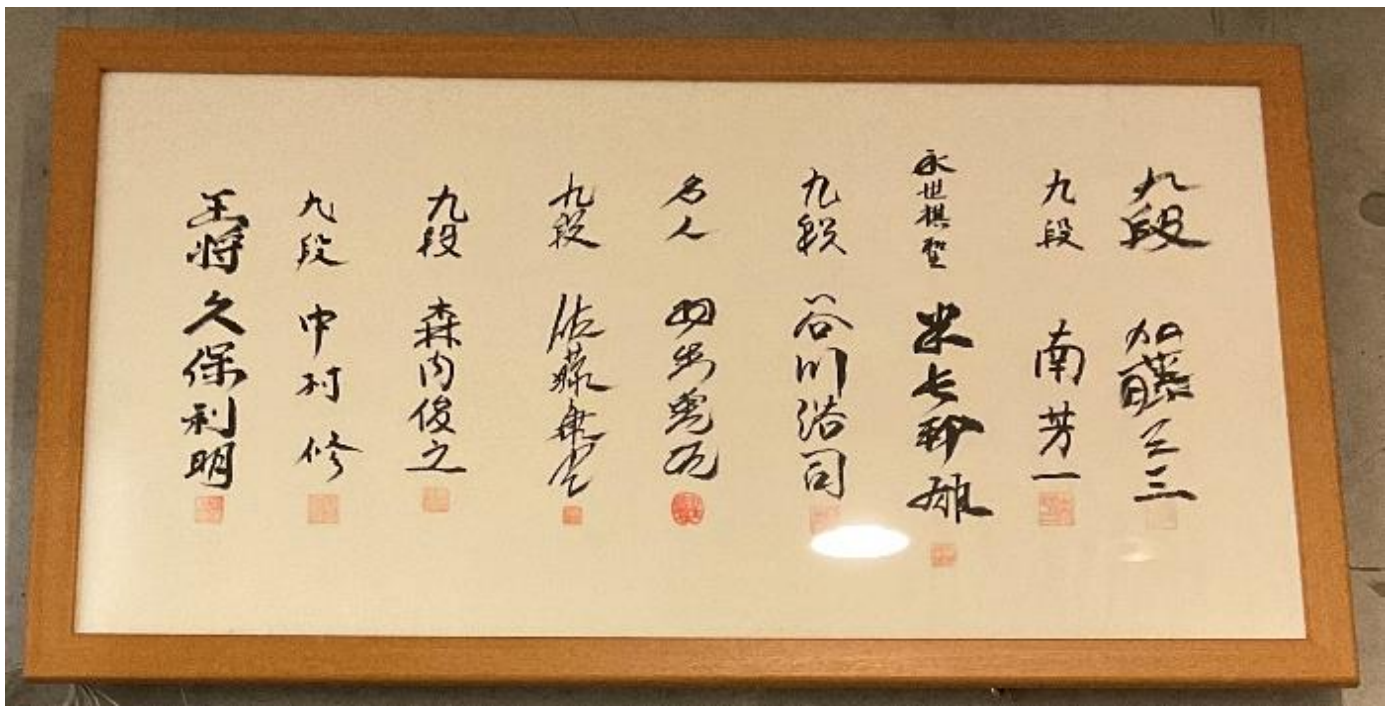 九段 加藤一二三
九段 南芳一
永世棋聖 米長邦雄
九段 谷川浩司
名人 羽生善治
九段 佐藤康光
九段 森内俊之
九段 中村修
王将 久保利明